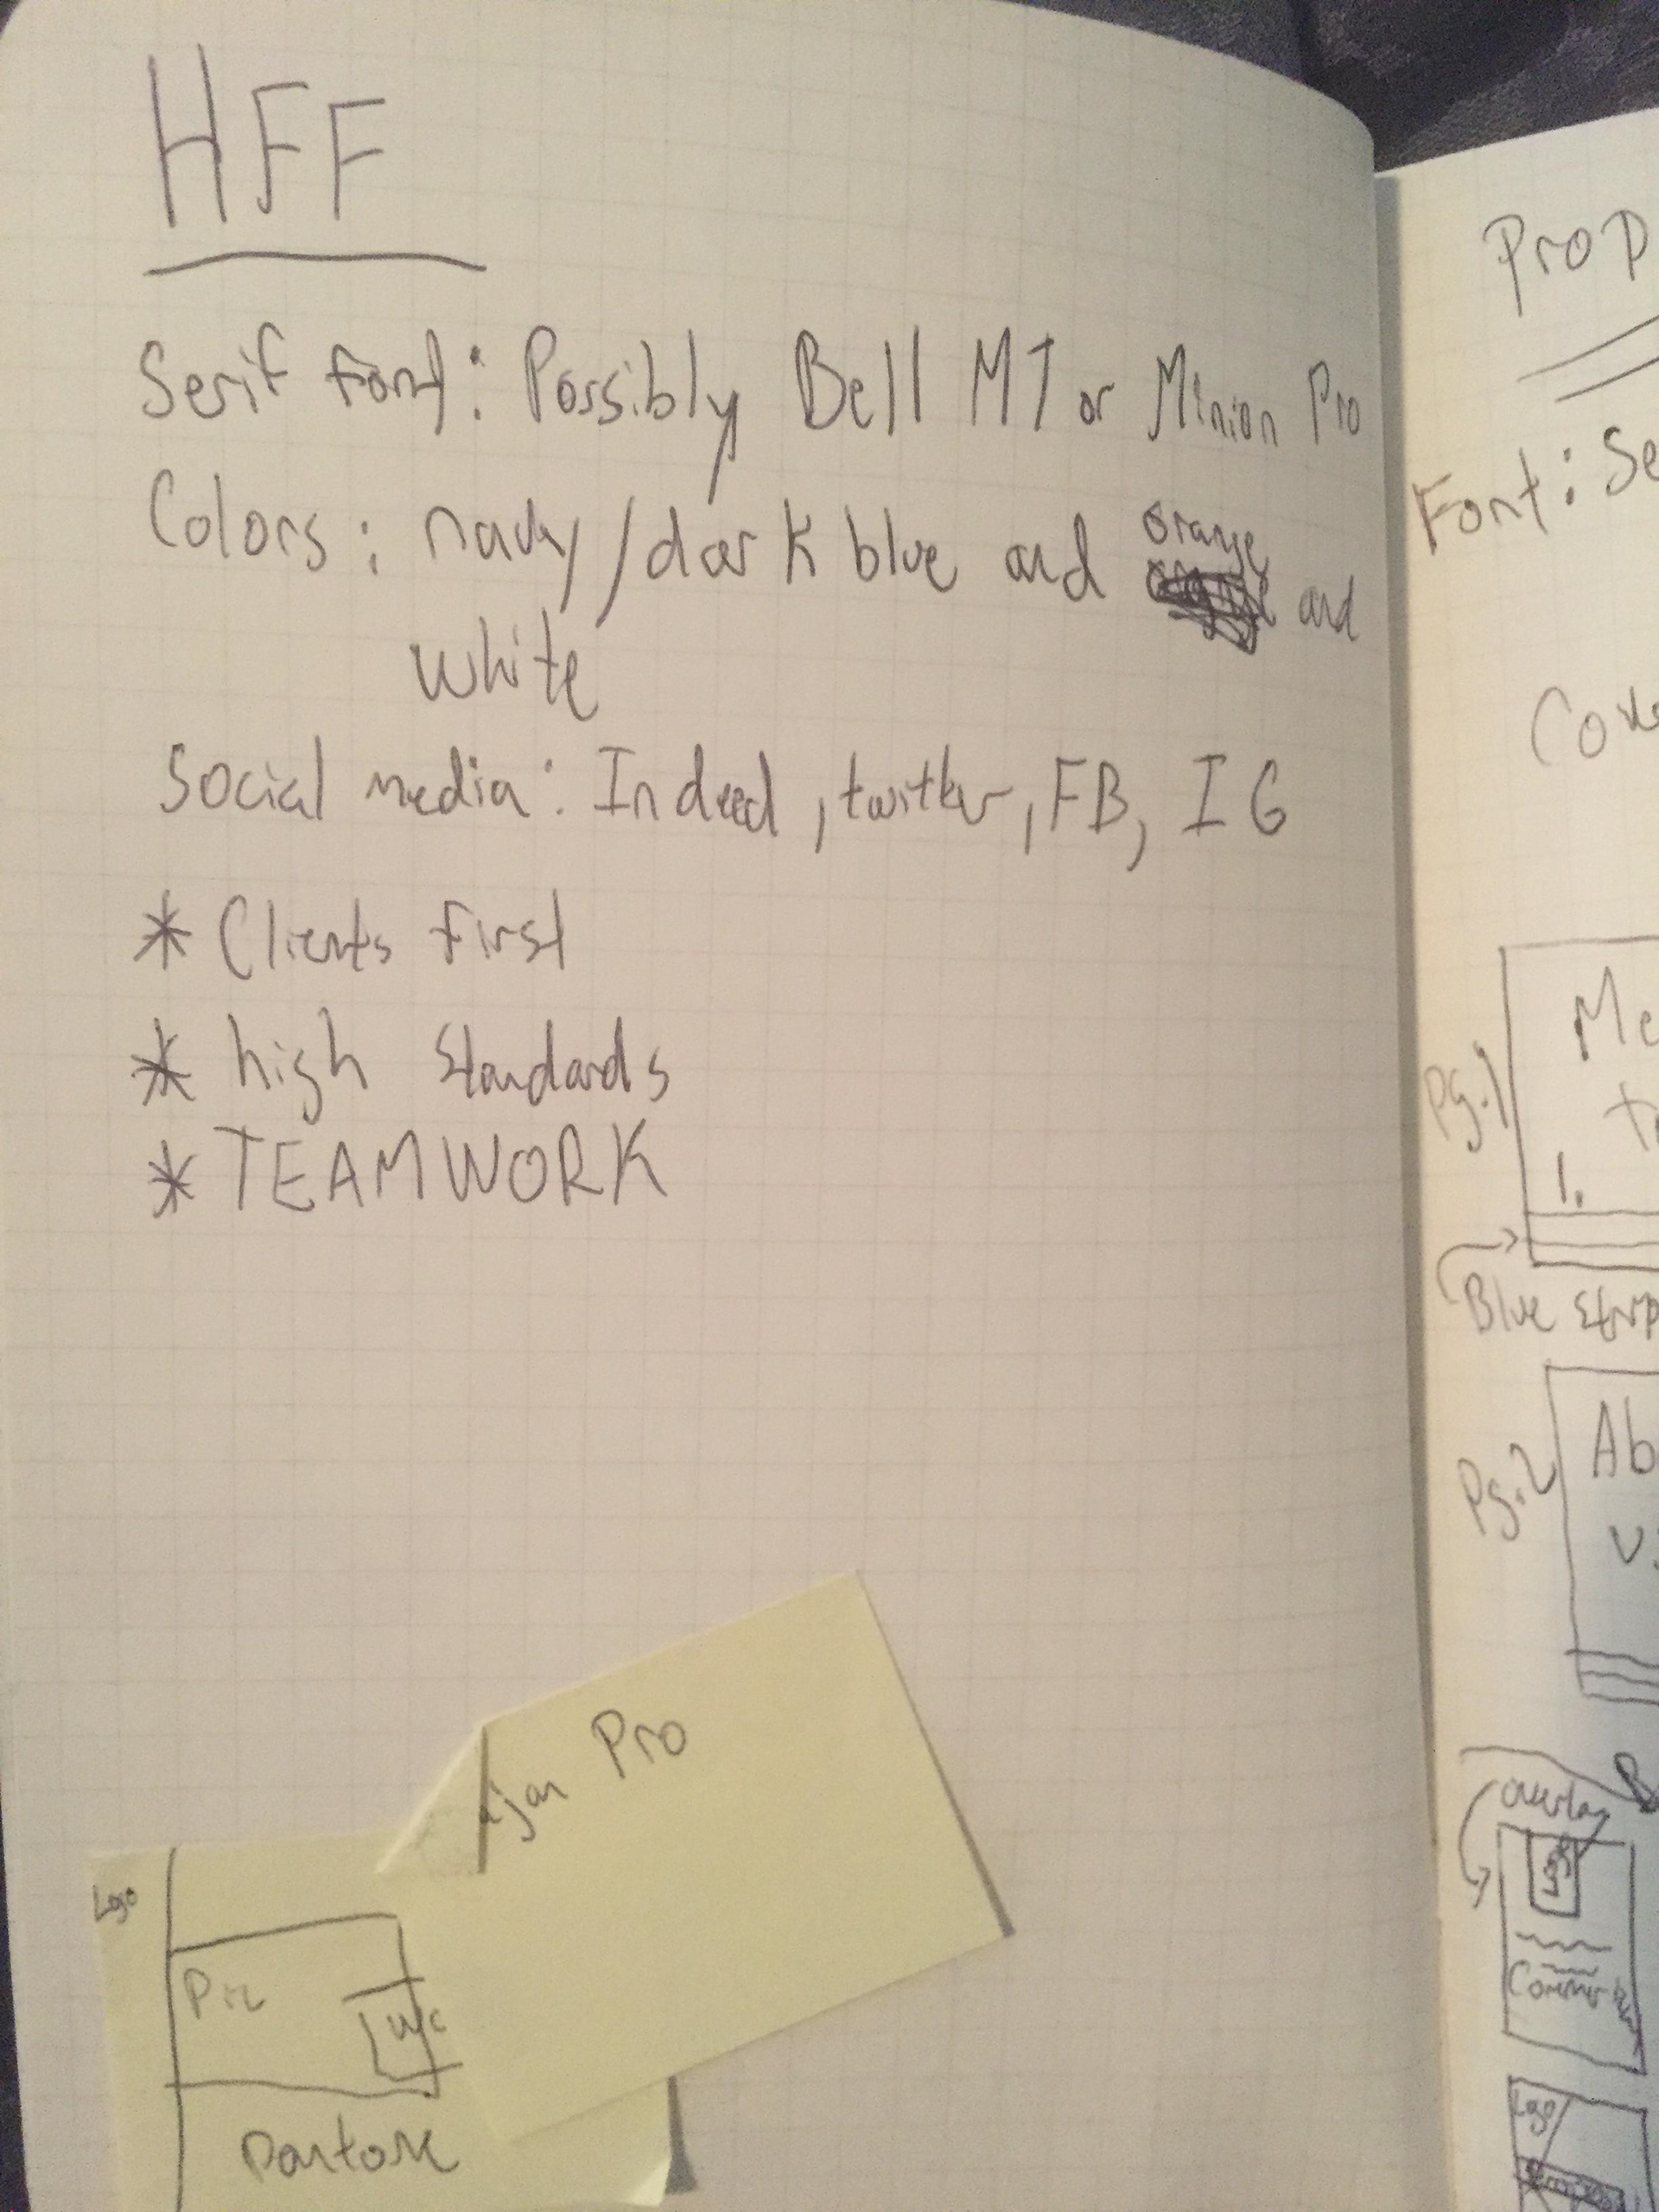 HFF
Serif font: Possibly Bell MT or Minion Pro
Colors: navy/dark blue and orange and
white
Social media: Indeed, twitter, FB, IG
* Clients first
* high standards
* TEAMWORK
ajan Pro
Logo
Pic
Pantone
Prop
Font: Se
Me
Pg.1
1.
Blue strip
Pg.2
Ab
overlay
Logo
Logo